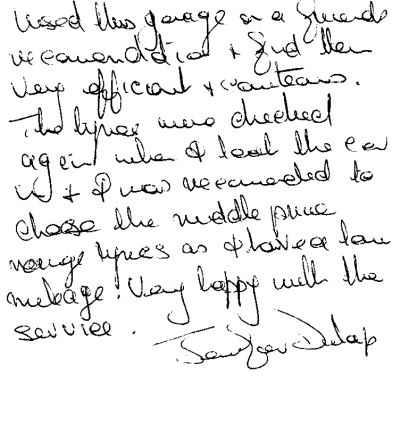 Used this garage on a friends
recomendation & find them
very efficient & courteous.
The tyres were checked
again when I took the car
in & I was recomended to
choose the middle price
range tyres as I have a low
mileage. Very happy with the
service.
Dunlop